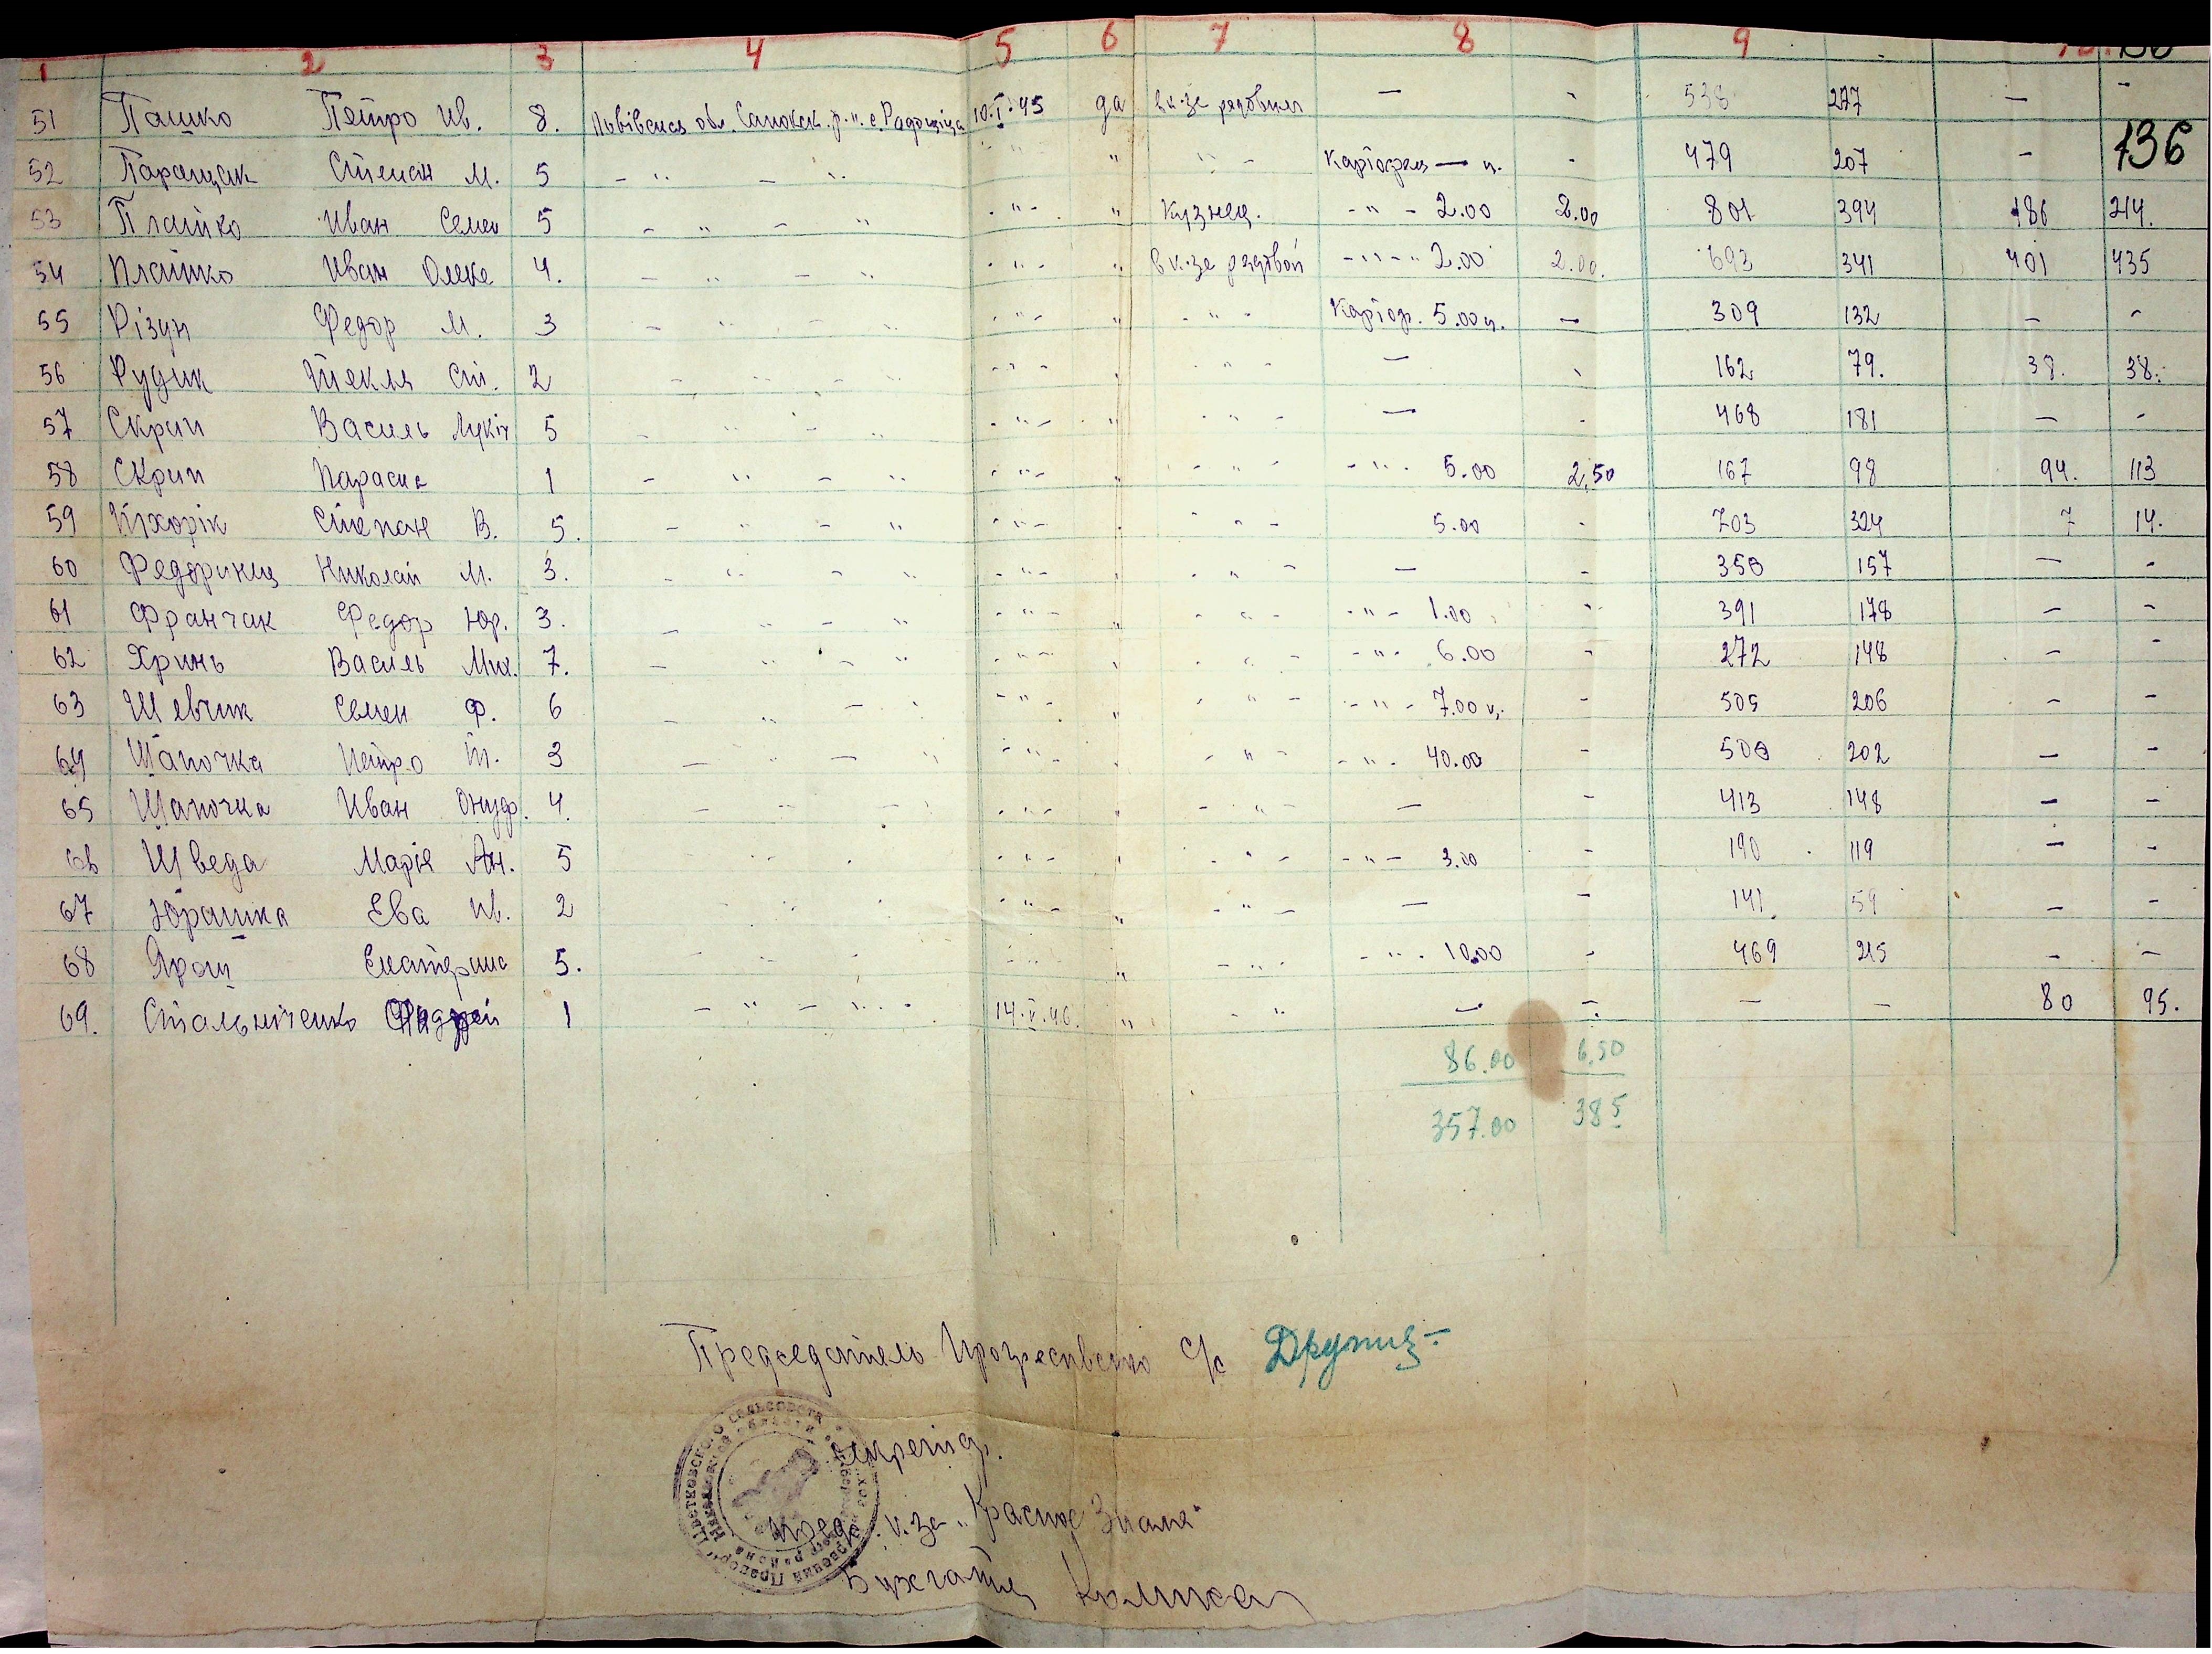 1 2 3 4 5 6 7 8 9
51 Пашко Петро Ив. 8. Львівська обл. Санокск. р-н. с. Радошица 10.I.45 да в к-зе рядовым — - 538 277 — -
136
52 Паращак Степан М. 5 - " - " " " " - Картофель — ц. - 479 207 -
53 Плайко Иван Семен 5 - " - " - " - " Кузнец. - " - 2.00 2.00 801 394 186 214.
54 Плайко Иван Олекс 4. - " - " - " - " в к-зе рядовой - " - " 2.00 2.00. 693 341 401 435
55 Різун Федор М. 3 - " - " - " - " - " - Картоф. 5.00 ц. — 309 132 — -
56 Рудик Текля Ст. 2 - " - " - " - " - " - — - 162 79. 38. 38.
57 Скрип Василь Лукіч 5 - " - " - " - " - " - — - 468 181 — -
58 Скрип Параска 1 - " - " - " - " - " - - " - 5.00 2,50 167 98 94. 113
59 Степан В. 5. - " - " - " - " - " - 5.00 - 703 324 7 14.
60 Федоринец Николай М. 3. - " - " - " - " - " - — - 350 157 — -
61 Франчак Федор Юр. 3. - " - " - " - " - " - - " - 1.00 - 391 178 — -
62 Хринь Василь Мих. 7. - " - " - " - " - " - - " - 6.00 - 272 148 - -
63 Шевчик Семен Ф. 6 - " - " - " - " - " - - " - 7.00 ц. - 505 206 - -
64 Шапочка Петро Т. 3 - " - " - " - " - " - - " - 40.00 - 500 202 — -
65 Шапочка Иван Онуф. 4. - " - " - " - " - " - — - 413 148 — -
66 Шведа Марія Ан. 5 - " - " - " - " - " - - " - 3.00 - 190 119 — -
67 Юрашка Ева Ив. 2 - " - " - " - " - " - — - 141 59 - -
68 Ярош Екатерина 5. - " - " - " - " - " - - " - 10.00 - 469 215 - —
69. Стальніченко Андрей 1 - " - " 14.V.46. " - " — - — - 80 95.
86.00 6,50
357.00 38 5
Председатель с/с
Секретар.
Пред. к-за "Красное Знамя"
Бухгалтер